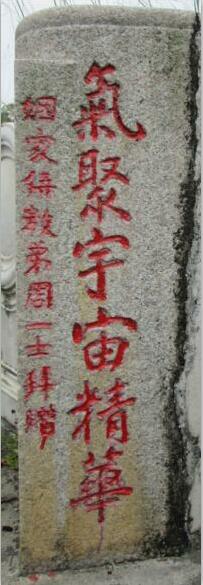 氣聚宇宙精華
姻家侍教弟周一士拜贈